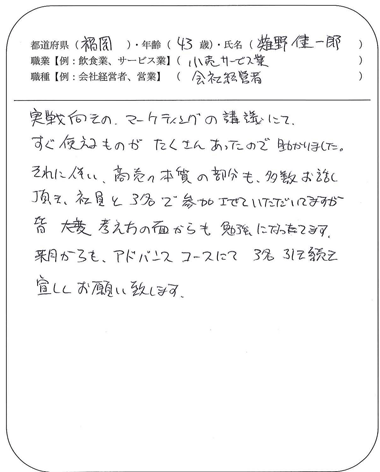 都道府県（ 福岡 ）・年齢（ 43 歳）・氏名（ 雄野 佳一郎 ）
職業【例：飲食業、サービス業】（ 小売サービス業 ）
職種【例：会社経営者、営業】（ 会社経営者 ）
実戦向その、マーケティングの講議にて、
すぐ使えるものが たくさんあったので助かりました。
それに伴い、商売の本質の部分も、多数お話し
頂き、社員と3名で参加させていただいてますが
皆 大変 考え方の面からも 勉強になってます。
来月からも、アドバンスコースにて 3名 引き続き
宜しくお願い致します。